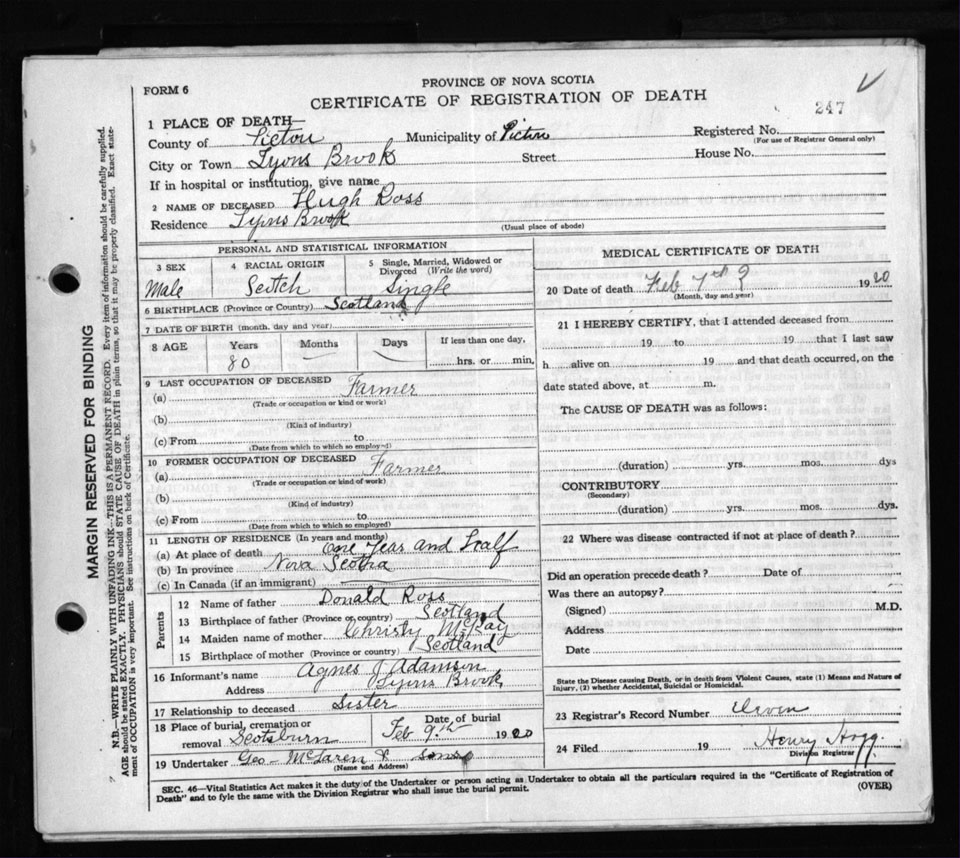 FORM 6
PROVINCE OF NOVA SCOTIA
CERTIFICATE OF REGISTRATION OF DEATH
247
1 PLACE OF DEATH—
County of Pictou Municipality of Pictou Registered No.
(For use of Registrar General only)
City or Town Lyons Brook Street House No.
If in hospital or institution, give name
2 NAME OF DECEASED Hugh Ross
Residence Lyons Brook
(Usual place of abode)
PERSONAL AND STATISTICAL INFORMATION
3 SEX 4 RACIAL ORIGIN 5 Single, Married, Widowed or Divorced (Write the word)
Male Scotch Single
6 BIRTHPLACE (Province or Country) Scotland
7 DATE OF BIRTH (month, day and year)
8 AGE Years Months Days If less than one day,
80 — — hrs. or min.
9 LAST OCCUPATION OF DECEASED
(a) Farmer
(Trade or occupation or kind or work)
(b)
(Kind of industry)
(c) From to
(Date from which to which so employed)
10 FORMER OCCUPATION OF DECEASED
(a) Farmer
(Trade or occupation or kind of work)
(b)
(Kind of industry)
(c) From to
(Date from which to which so employed)
11 LENGTH OF RESIDENCE (In years and months)
(a) At place of death One Year and Half
(b) In province Nova Scotia
(c) In Canada (if an immigrant)
Parents
12 Name of father Donald Ross
13 Birthplace of father (Province or country) Scotland
14 Maiden name of mother Christy McKay
15 Birthplace of mother (Province or country) Scotland
16 Informant's name Agnes J Adamson
Address Lyons Brook
17 Relationship to deceased Sister
18 Place of burial, cremation or removal Scotsburn Date of burial Feb 9th 1920
19 Undertaker Geo McLaren & Sons
(Name and Address)
MEDICAL CERTIFICATE OF DEATH
20 Date of death Feb 7th 1920
(Month, day and year)
21 I HEREBY CERTIFY, that I attended deceased from
19 to 19 that I last saw
h alive on 19 and that death occurred, on the
date stated above, at m.
The CAUSE OF DEATH was as follows:
(duration) yrs. mos. dys
CONTRIBUTORY
(Secondary)
(duration) yrs. mos. dys.
22 Where was disease contracted if not at place of death?
Did an operation precede death? Date of
Was there an autopsy?
(Signed) M.D.
Address
Date
State the Disease causing Death, or in death from Violent Causes, state (1) Means and Nature of
Injury, (2) whether Accidental, Suicidal or Homicidal.
23 Registrar's Record Number
24 Filed 19 Henry Hogg
Division Registrar
SEC. 46—Vital Statistics Act makes it the duty of the Undertaker or person acting as Undertaker to obtain all the particulars required in the "Certificate of Registration of
Death" and to fyle the same with the Division Registrar who shall issue the burial permit.
(OVER)
MARGIN RESERVED FOR BINDING
N.B.—WRITE PLAINLY WITH UNFADING INK—THIS IS A PERMANENT RECORD. Every item of information should be carefully supplied.
AGE should be stated EXACTLY. PHYSICIANS should STATE CAUSE OF DEATH in plain terms, so that it may be properly classified. Exact state-
ment of OCCUPATION is very important. See instructions on back of Certificate.